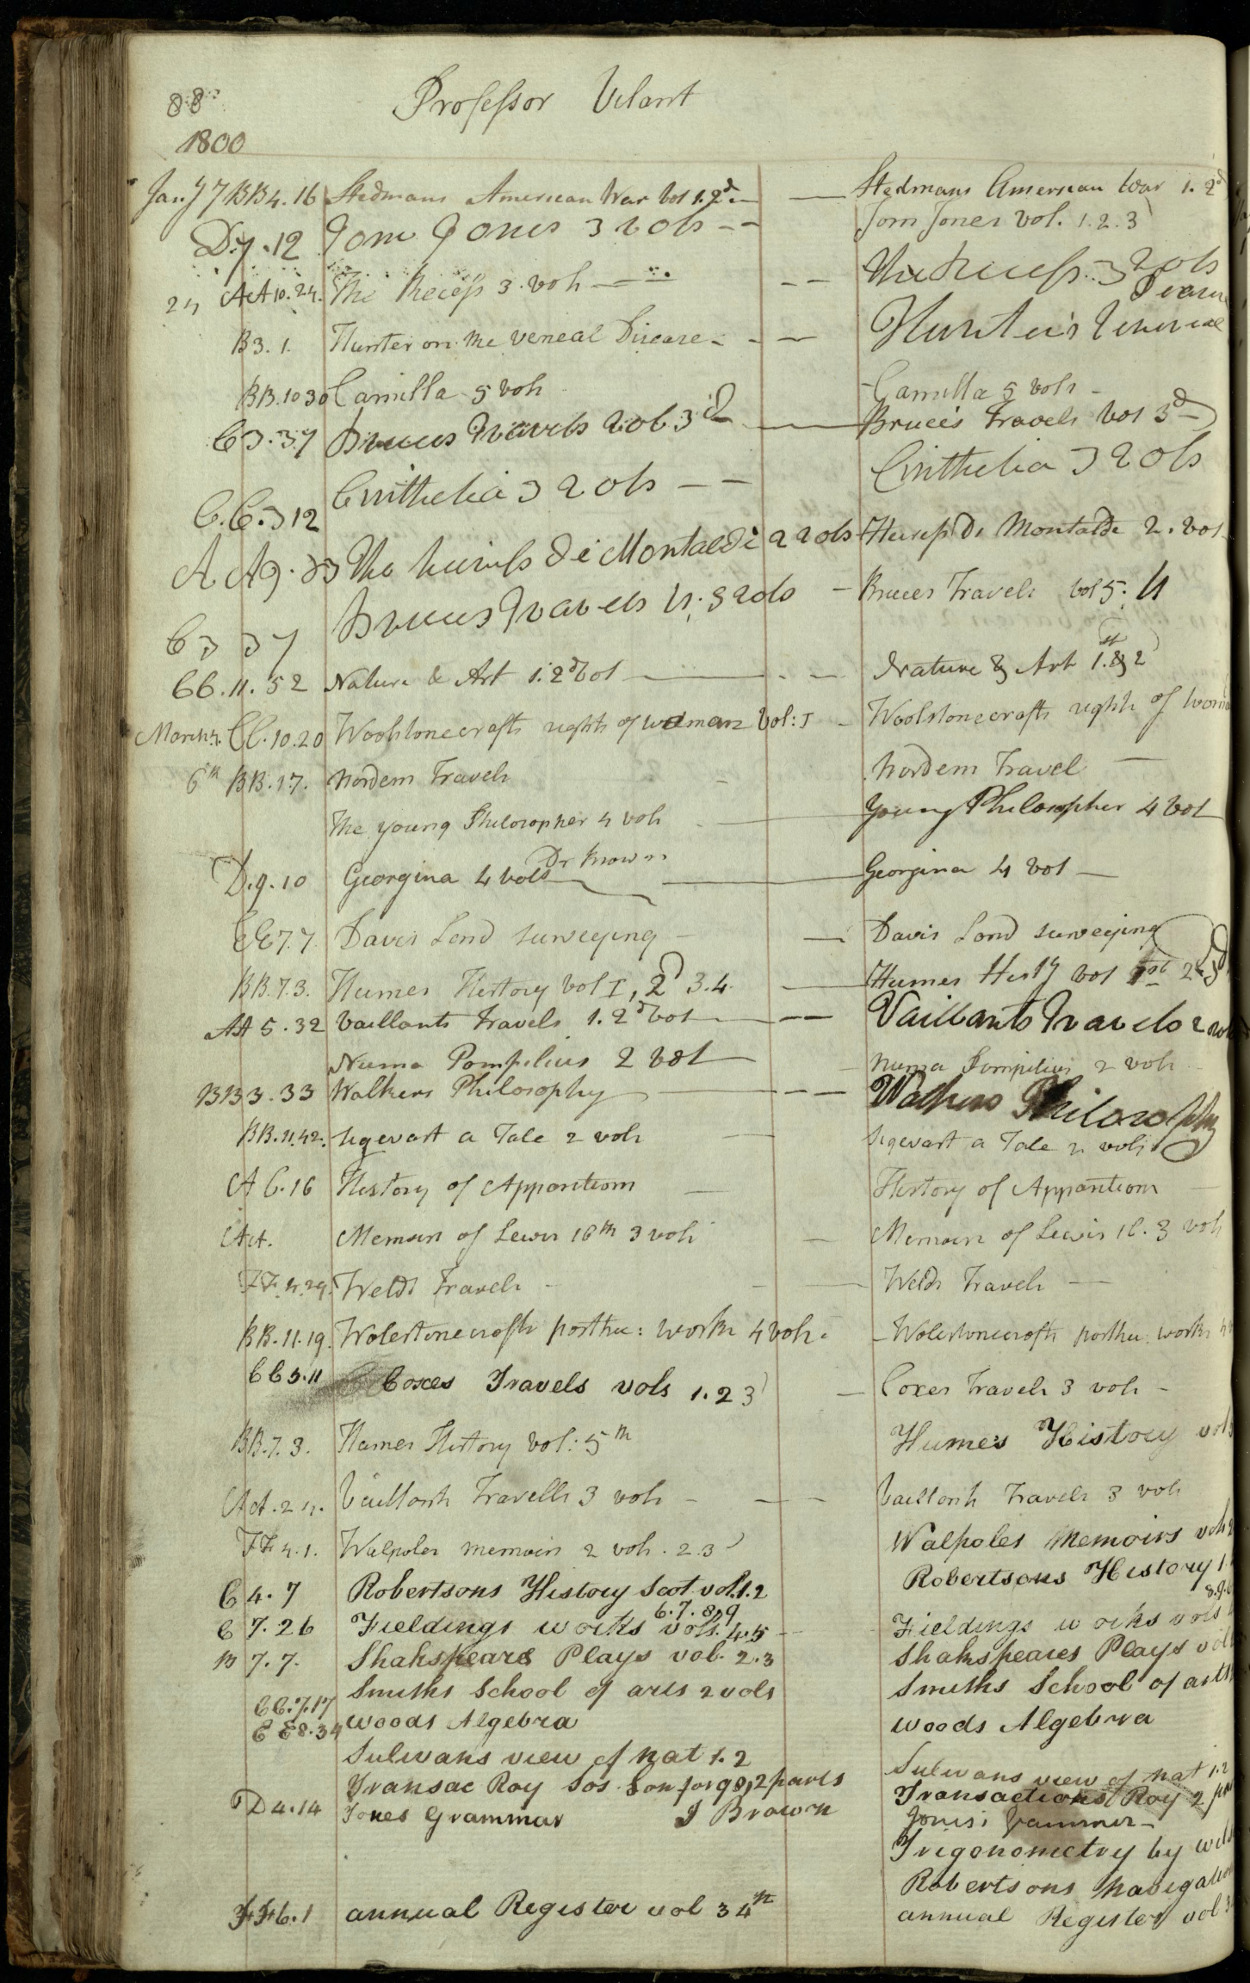 88
Professor Vilant
1800
Jany 7 BB4.16 Stedmans American War Vol 1.2d — Stedmans American War 1.2d
D.7.12 Tom Jones 3 vols — Tom Jones Vol. 1.2.3
24 AA10.24. The Recess 3 vols — The Recess 3 vols
B3.1. Hunter on the veneal Disease — Hunters Venereal
BB.1030 Camilla 5 vols — Camilla 5 vols
C3.37 Bruces Travels Vol 3d — Bruce's Travels Vol 3d
C.C.312 Cinthelia 3 vols — Cinthelia 3 vols
AA9.33 The heiress di Montalde 2 vols — Heiress Di Montalde 2. vol
C3 37 Bruces Travels 4; 5 vols — Bruces Travels vol 5; 4
CC.11.52 Nature & Art 1.2d Vol — Nature & Art 1.st & 2
March 4. CC.10.20 Woolstonecrafts rights of woman Vol: I — Woolstonecrafts rights of
6th BB.1.7. Nordens Travels — Nordens Travel
The young Philosopher 4 vols — Young Philosopher 4 Vol
Dr Brown
D.9.10 Georgina 4 vols — Georgina 4 vol
EE7.7. Davis Land surveying — Davis Land surveying
BB.7.3. Humes History Vol I, 2d 3.4. — Humes Histy Vol 1st 2d
AA 5.32 Vaillants Travels 1.2d vol — Vaillants Travels 2
Numa Pompilius 2 Vol — Numa Pompilius 2 vols
BB3.33 Walkers Philosophy — Walkers Philosophy
BB.11.42. Sigevart a Tale 2 vols — Sigevart a Tale 2 vols
A6.16 History of Apparitions — History of Apparitions
AA. Memoirs of Lewis 16th 3 vols — Memoirs of Lewis 16. 3 vols
FF.4.29. Welds Travels — Welds Travels
BB.11.19. Wolestonecrafts posthu: works 4 vols. — Wolestonecrafts posthu. works
CC5.11 Coxes Travels vols 1.2 3 — Coxes Travels 3 vols
BB.7.3. Humes History Vol: 5th — Humes History
AA.24. Vaillants Travells 3 vols — Vaillants Travels 3 vols
FF4.1. Walpoles memoirs 2 vols. 2.3 — Walpoles Memoirs
C4.7 Robertsons History Scot vol.1.2 — Robertsons History
6.7.8,9
C 7.26 Fieldings works vols. 4.5 — Fieldings works vols
B 7.7. Shakspeare Plays vol. 2.3 — Shakspeares Plays
CC.7.17 Smiths School of arts 2 vols — Smiths School of arts
EE8.34 Woods Algebra — Woods Algebra
Sulivans view of Nat 1.2 — Sulivans view of nat 1.2
Transac Roy Sos. Lon for 98,2 parts — Transactions Roy 2
D4.14 Jones Grammar J Brown — Jones Grammar
Trigonometry by
Robertsons Navigation
FF6.1 annual Register vol 34th — annual Register vol